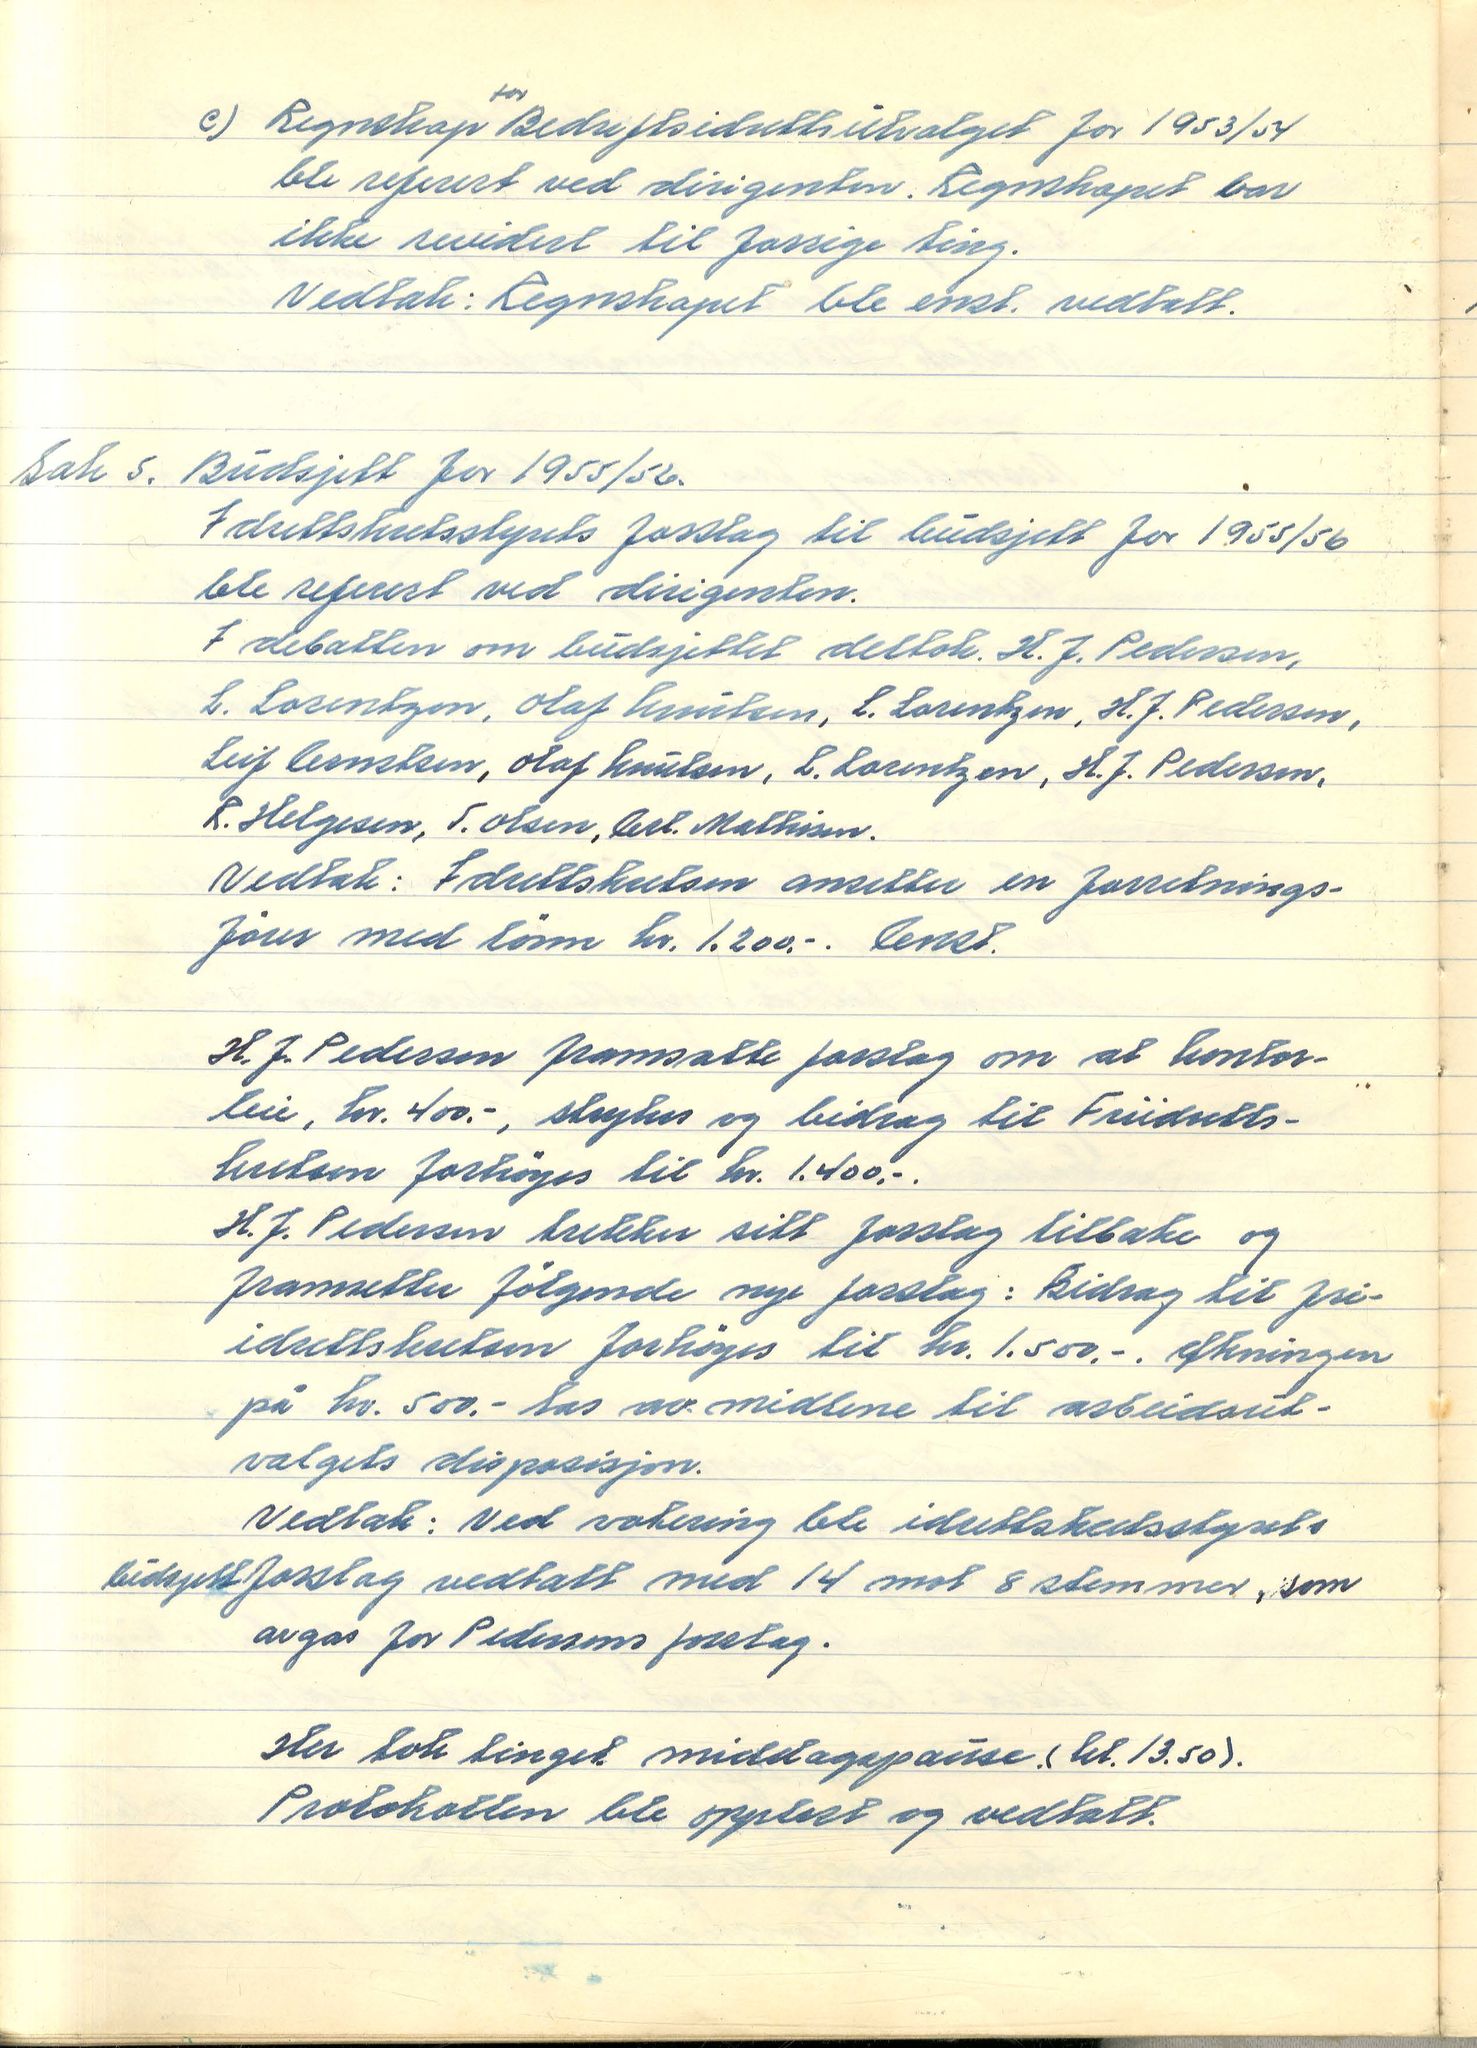 c) Regnskap for Bedriftsidrettsutvalget for 1953/54
ble referert ved dirigenten. Regnskapet var
ikke revidert til forrige ting.
Vedtak: Regnskapet ble enst. vedtatt.
Sak 5. Budsjett for 1955/56.
Idrettskretsstyrets forslag til budsjett for 1955/56
ble referert ved dirigenten.
I debatten om budsjettet deltok. H. J. Pedersen,
L. Lorentzen, Olaf Knutsen, L. Lorentzen, H. J. Pedersen,
Leif Arentsen, Olaf Knutsen, L. Lorentzen, H. J. Pedersen,
R. Helgesen, T. Olsen, Mathisen.
Vedtak: Idrettskretsen ansetter en forretnings-
fører med lønn kr. 1.200.-. Enst.
H. J. Pedersen framsatte forslag om at kontor-
leie, kr. 400.-, strykes og bidrag til Friidretts-
kretsen forhøyes til kr. 1.400.-.
H. J. Pedersen trekker sitt forslag tilbake og
framsetter følgende nye forslag: Bidrag til fri-
idrettskretsen forhøyes til kr. 1.500.-. Økningen
på kr. 500.- tas av midlene til arbeidsut-
valgets disposisjon.
Vedtak: Ved votering ble idrettskretsstyrets
budsjettforslag vedtatt med 14 mot 8 stemmer, som
avgas for Pedersens forslag.
Her tok tinget middagspause. (kl. 13.50).
Protokollen ble opplest og vedtatt.